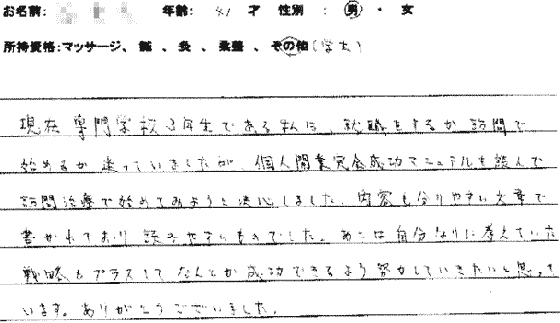 お名前: 年齢: 41 才 性別 : 男 ・ 女
所持資格:マッサージ、 鍼 、 灸 、 柔整 、 その他(学生)
現在 専門学校3年生である私は、就職をするか訪問で
始めるか迷っていましたが、個人開業完全成功マニュアルを読んで
訪問治療で始めてみようと決心しました。内容も分りやすい文章で
書かれており読みやすいものでした。あとは自分なりに考えていた
戦略もプラスしてなんとか成功できるよう努力していきたいと思って
います。ありがとうございました。